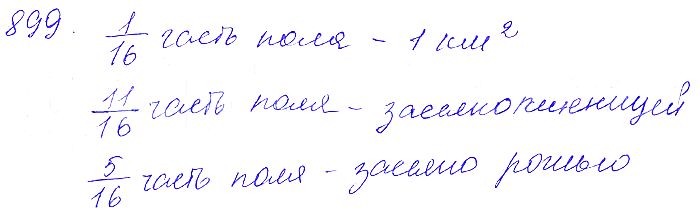 899. 1/16 часть поля - 1 км²
11/16 часть поля - засеяно пшеницей
5/16 часть поля - засеяно рожью